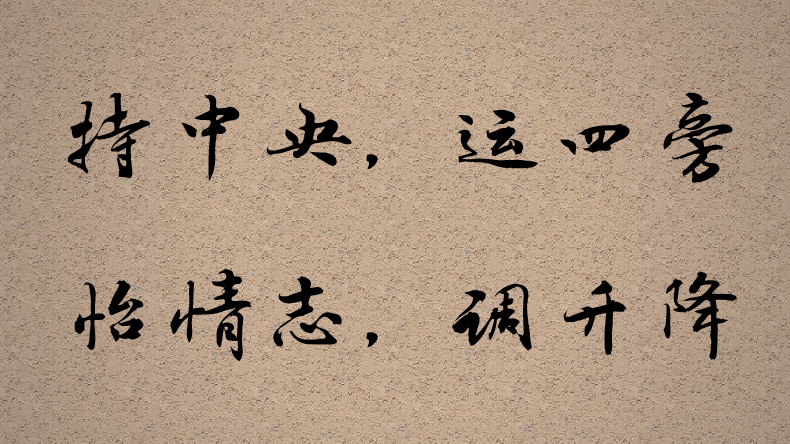 持中央，运四旁
怡情志，调升降